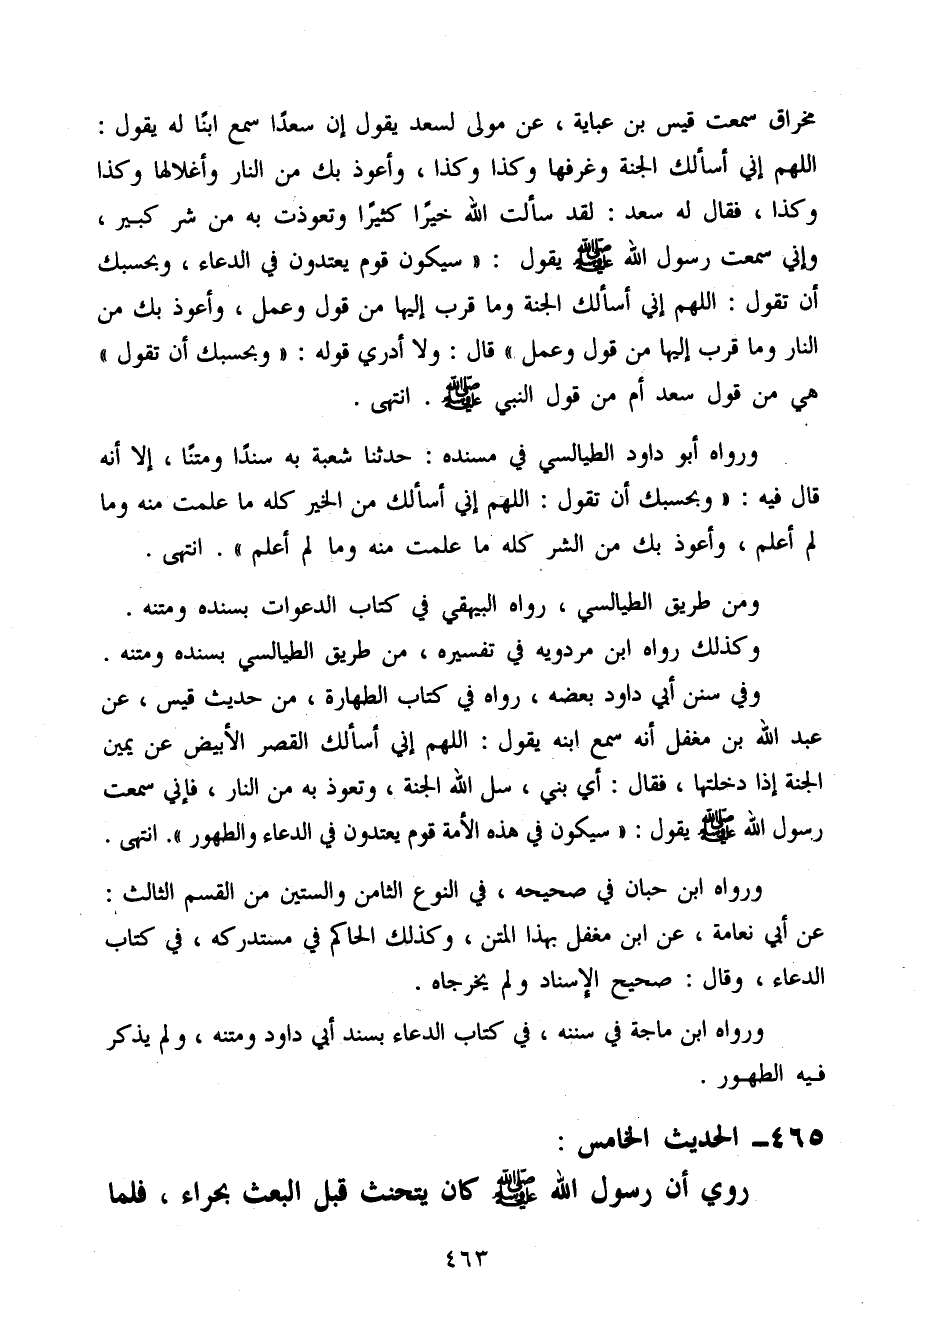 مخراق سمعت قيس بن عباية ، عن مولى لسعد يقول إن سعدًا سمع ابنًا له يقول :
اللهم إني أسألك الجنة وغرفها وكذا وكذا ، وأعوذ بك من النار وأغلالها وكذا
وكذا ، فقال له سعد : لقد سألت الله خيرًا كثيرًا وتعوذت به من شر كبير ،
وإني سمعت رسول الله ﷺ يقول : « سيكون قوم يعتدون في الدعاء ، وبحسبك
أن تقول : اللهم إني أسألك الجنة وما قرب إليها من قول وعمل ، وأعوذ بك من
النار وما قرب إليها من قول وعمل » قال : ولا أدري قوله : « وبحسبك أن تقول »
هي من قول سعد أم من قول النبي ﷺ . انتهى .
ورواه أبو داود الطيالسي في مسنده : حدثنا شعبة به سندًا ومتنًا ، إلا أنه
قال فيه : « وبحسبك أن تقول : اللهم إني أسألك من الخير كله ما علمت منه وما
لم أعلم ، وأعوذ بك من الشر كله ما علمت منه وما لم أعلم » . انتهى .
ومن طريق الطيالسي ، رواه البيهقي في كتاب الدعوات بسنده ومتنه .
وكذلك رواه ابن مردويه في تفسيره ، من طريق الطيالسي بسنده ومتنه .
وفي سنن أبي داود بعضه ، رواه في كتاب الطهارة ، من حديث قيس ، عن
عبد الله بن مغفل أنه سمع ابنه يقول : اللهم إني أسألك القصر الأبيض عن يمين
الجنة إذا دخلتها ، فقال : أي بني ، سل الله الجنة ، وتعوذ به من النار ، فإني سمعت
رسول الله ﷺ يقول : « سيكون في هذه الأمة قوم يعتدون في الدعاء والطهور ». انتهى .
ورواه ابن حبان في صحيحه ، في النوع الثامن والستين من القسم الثالث :
عن أبي نعامة ، عن ابن مغفل بهذا المتن ، وكذلك الحاكم في مستدركه ، في كتاب
الدعاء ، وقال : صحيح الإسناد ولم يخرجاه .
ورواه ابن ماجة في سننه ، في كتاب الدعاء بسند أبي داود ومتنه ، ولم يذكر
فيه الطهور .
٤٦٥ـ الحديث الخامس :
روي أن رسول الله ﷺ كان يتحنث قبل البعث بحراء ، فلما
٤٦٣